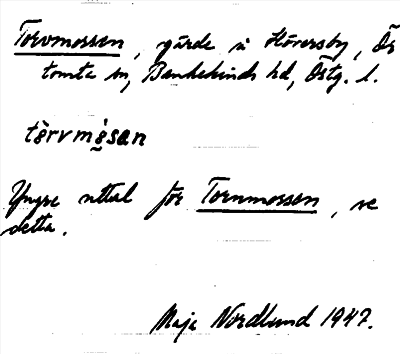 Torvmossen, gärde i Häversby, Ös
tomta sn, Bankekinds hd, Östg. l.
tòrvmòsan
Yngre uttal för Tornmossen, se
detta.
Maja Nordlund 1947.